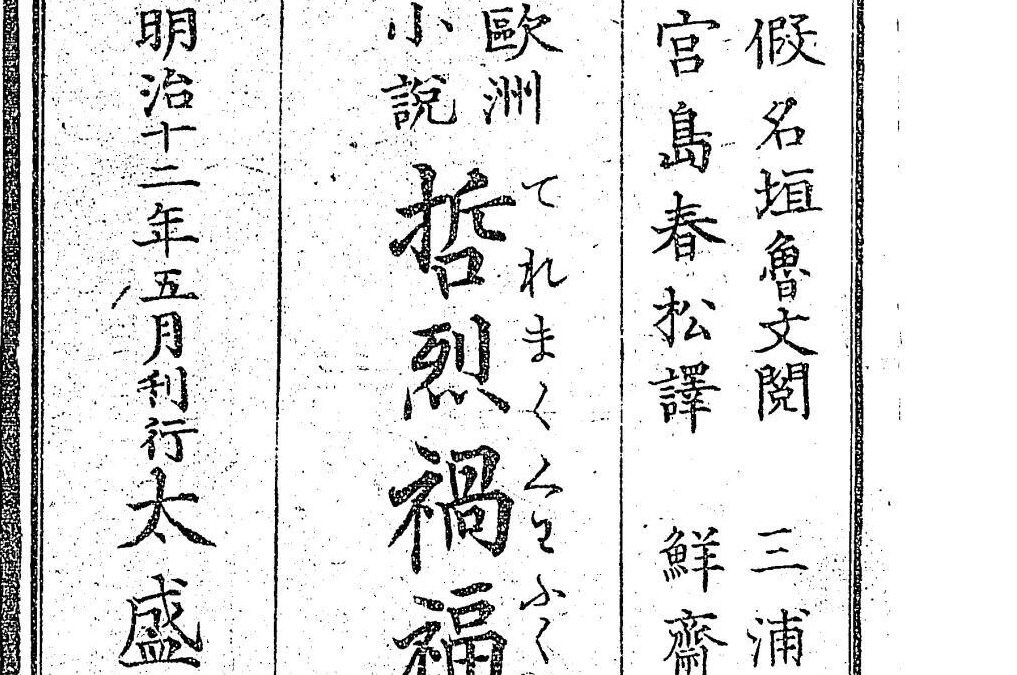 假名垣魯文閲 三浦
宮島春松譯 鮮齋
歐洲
小說
てれまくくわふく
哲烈禍福
明治十二年五月刊行太盛